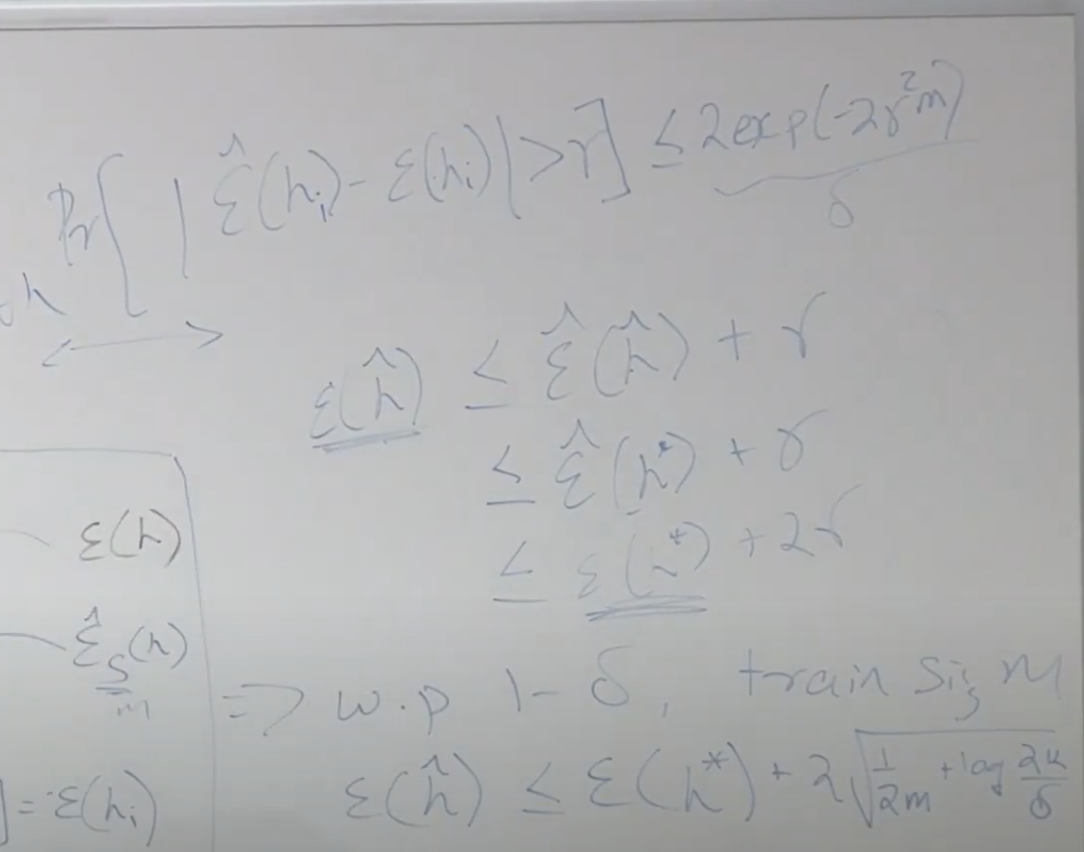 Pr[ | ε̂(hᵢ) - ε(hᵢ) | > γ ] ≤ 2exp(-2γ²m)
δ
h
ε(ĥ) ≤ ε̂(ĥ) + γ
≤ ε̂(h*) + γ
≤ ε(h*) + 2γ
ε(h)
ε̂_S(h)
m
=> w.p 1-δ, train siz m
ε(ĥ) ≤ ε(h*) + 2√(1/2m + log 2k/δ)
] = ε(hᵢ)